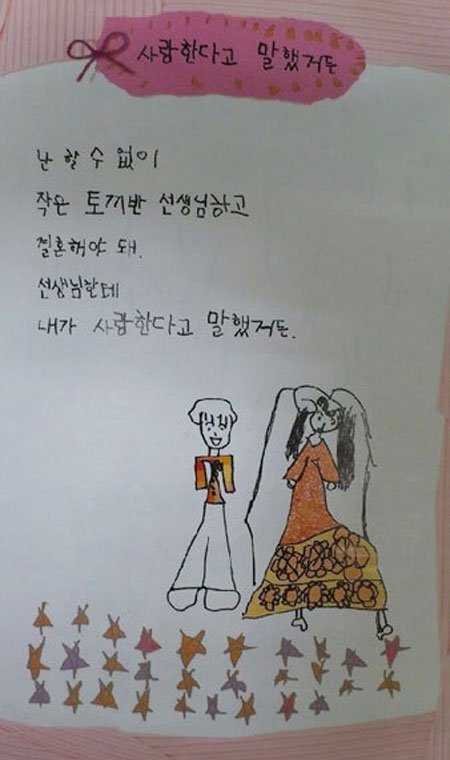 사람한다고 말했거든
난 할 수 없이
작은 토끼반 선생님하고
결혼해야 돼.
선생님한테
내가 사람한다고 말했거든.